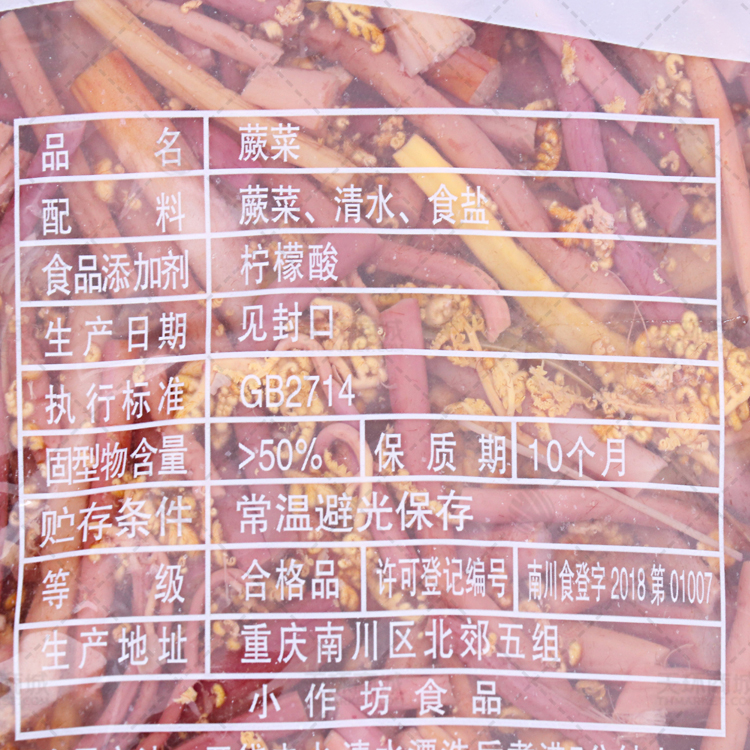 品 名 蕨菜
配 料 蕨菜、清水、食盐
食品添加剂 柠檬酸
生产日期 见封口
执行标准 GB2714
固型物含量 >50% 保质期 10个月
贮存条件 常温避光保存
等 级 合格品 许可登记编号 南川食登字2018第01007
生产地址 重庆南川区北郊五组
小作坊食品